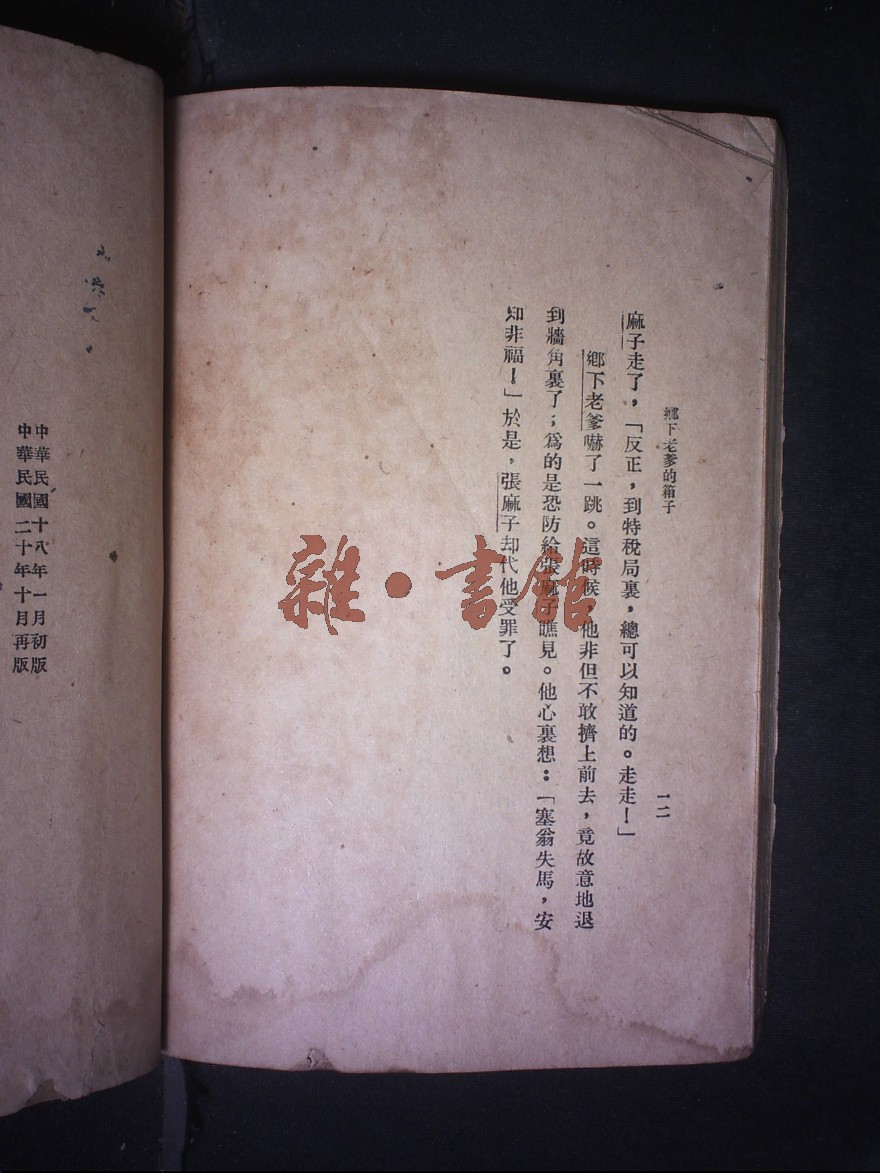 鄉下老爹的箱子
一二
麻子走了，「反正，到特稅局裏，總可以知道的。走走！」
鄉下老爹嚇了一跳。這時候，他非但不敢擠上前去，竟故意地退
到牆角裏了；爲的是恐防給張麻子瞧見。他心裏想：「塞翁失馬，安
知非福！」於是，張麻子却代他受罪了。
雜·書館
中華民國十八年一月初版
中華民國二十年十月再版